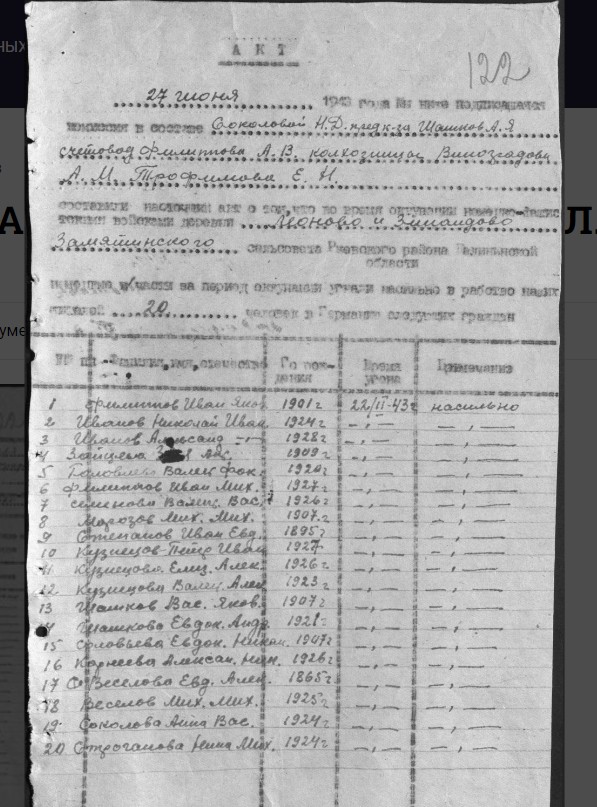 АКТ
122
27 июня 1943 года Мы ниже подписавшиеся
комиссия в составе Соколовой Н.Д. пред к-за Шашков А.Я
счетовод Филиппова А.В. колхозницы Виноградова
А.М. Трофимова Е.Н.
составили настоящий акт о том, что во время оккупации немецко-фашис
тскими войсками деревни Леоново и
сельсовета Ржевского района Калининской
области
немецкие власти за период оккупации угнали насильно в рабство наших
20 человек в Германию следующих граждан
№№ пп Фамилия, имя, отчество Го рож- Время Примечание
дения угона
1 Филиппов Иван Яков. 1901г 22/II-43г насильно
2 Иванов Николай Иван 1924г -„- -„-
3 Иванов Александ -„- 1928г -„- -„-
4 Зайцева 1909г -„- -„-
5 Вален Фок. -„- -„-
6 Филиппов Иван Мих. 1927г -„- -„-
7 Семенова Вален. Вас. 1926г -„- -„-
8 Морозов Мих. Мих. 1907г -„- -„-
9 Степанов Иван Евд. 1895г -„- -„-
10 Кузнецов Петр Иван 1927 -„- -„-
11 Кузнецова Елиз. Алек. 1926г -„- -„-
12 Кузнецова Вален. Алек 1923г -„- -„-
13 Шашков Вас. Яков. 1907г -„- -„-
14 Шашкова Евдок. Андр. -„- -„-
15 Соловьева Евдок. Никон. 1907г -„- -„-
16 Корнеева Алексан. Ник. 1926г -„- -„-
17 Веселова Евд. Алек. 1865г -„- -„-
18 Веселов Мих. Мих. 1925г -„- -„-
19 Соколова Анна Вас. 1924г -„- -„-
20 Строганова Нина Мих. 1924г -„- -„-